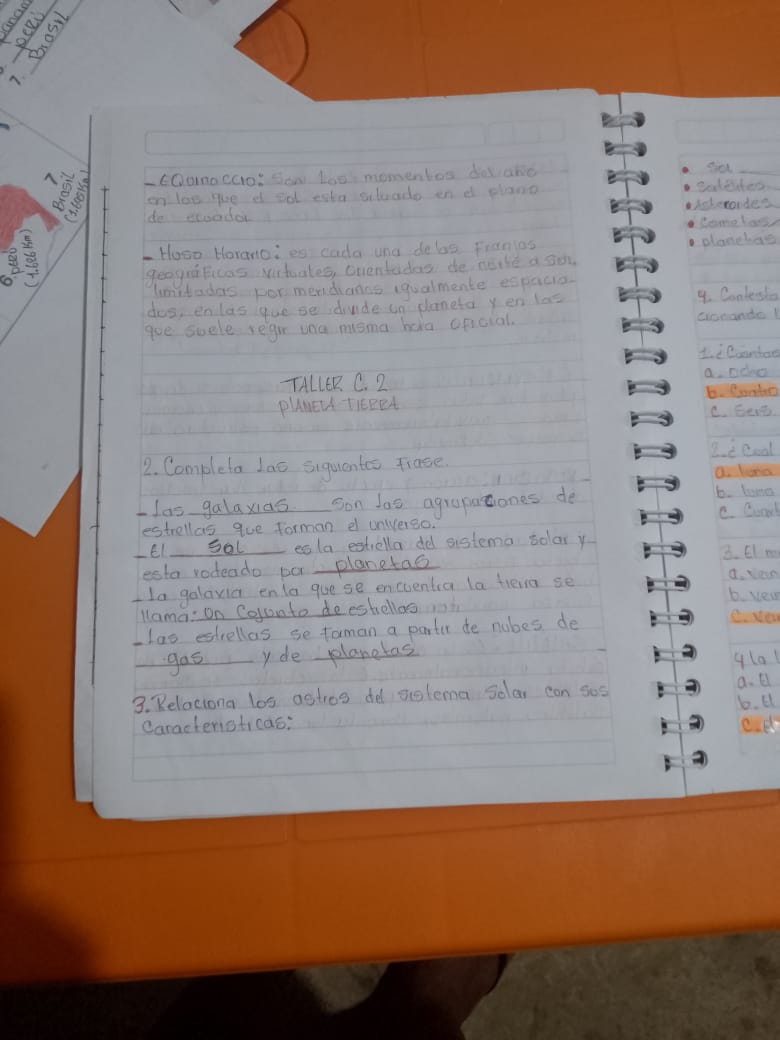 panam
perú
7. Brasil
7
Brasil
6. perú
(1.626 Km)
- EQuinoccio: Son los momentos del año
en los que el sol esta situado en el plano
de ecuador
- Huso Horario: es cada una de las Franjas
geográficas virtuales, orientadas de norte a sur,
limitadas por meridianos igualmente espacia-
dos, en las que se divide un planeta y en las
que suele regir una misma hora oficial.
TALLER C. 2
PLANETA TIERRA
2. Completa las siguientes frase.
- las galaxias son las agrupaciones de
estrellas que forman el universo.
- El sol es la estrella del sistema solar y
esta rodeado por planetas
- la galaxia en la que se encuentra la tierra se
llama: Un Conjunto de estrellas
- las estrellas se forman a partir de nubes de
gas y de planetas
3. Relaciona los astros del sistema Solar con sus
características:
• Sol
• Satélites
• Asteroides
• Cometas
• planetas
4. Contesta
cionando l
1. ¿Cuantas
a. ocho
b. Cuatro
c. Seis.
2. ¿Cual
a. luna
b. luna
c.
3. El m
a. ven
b. ven
c. ven
4 la l
a. El
b. El
c. El